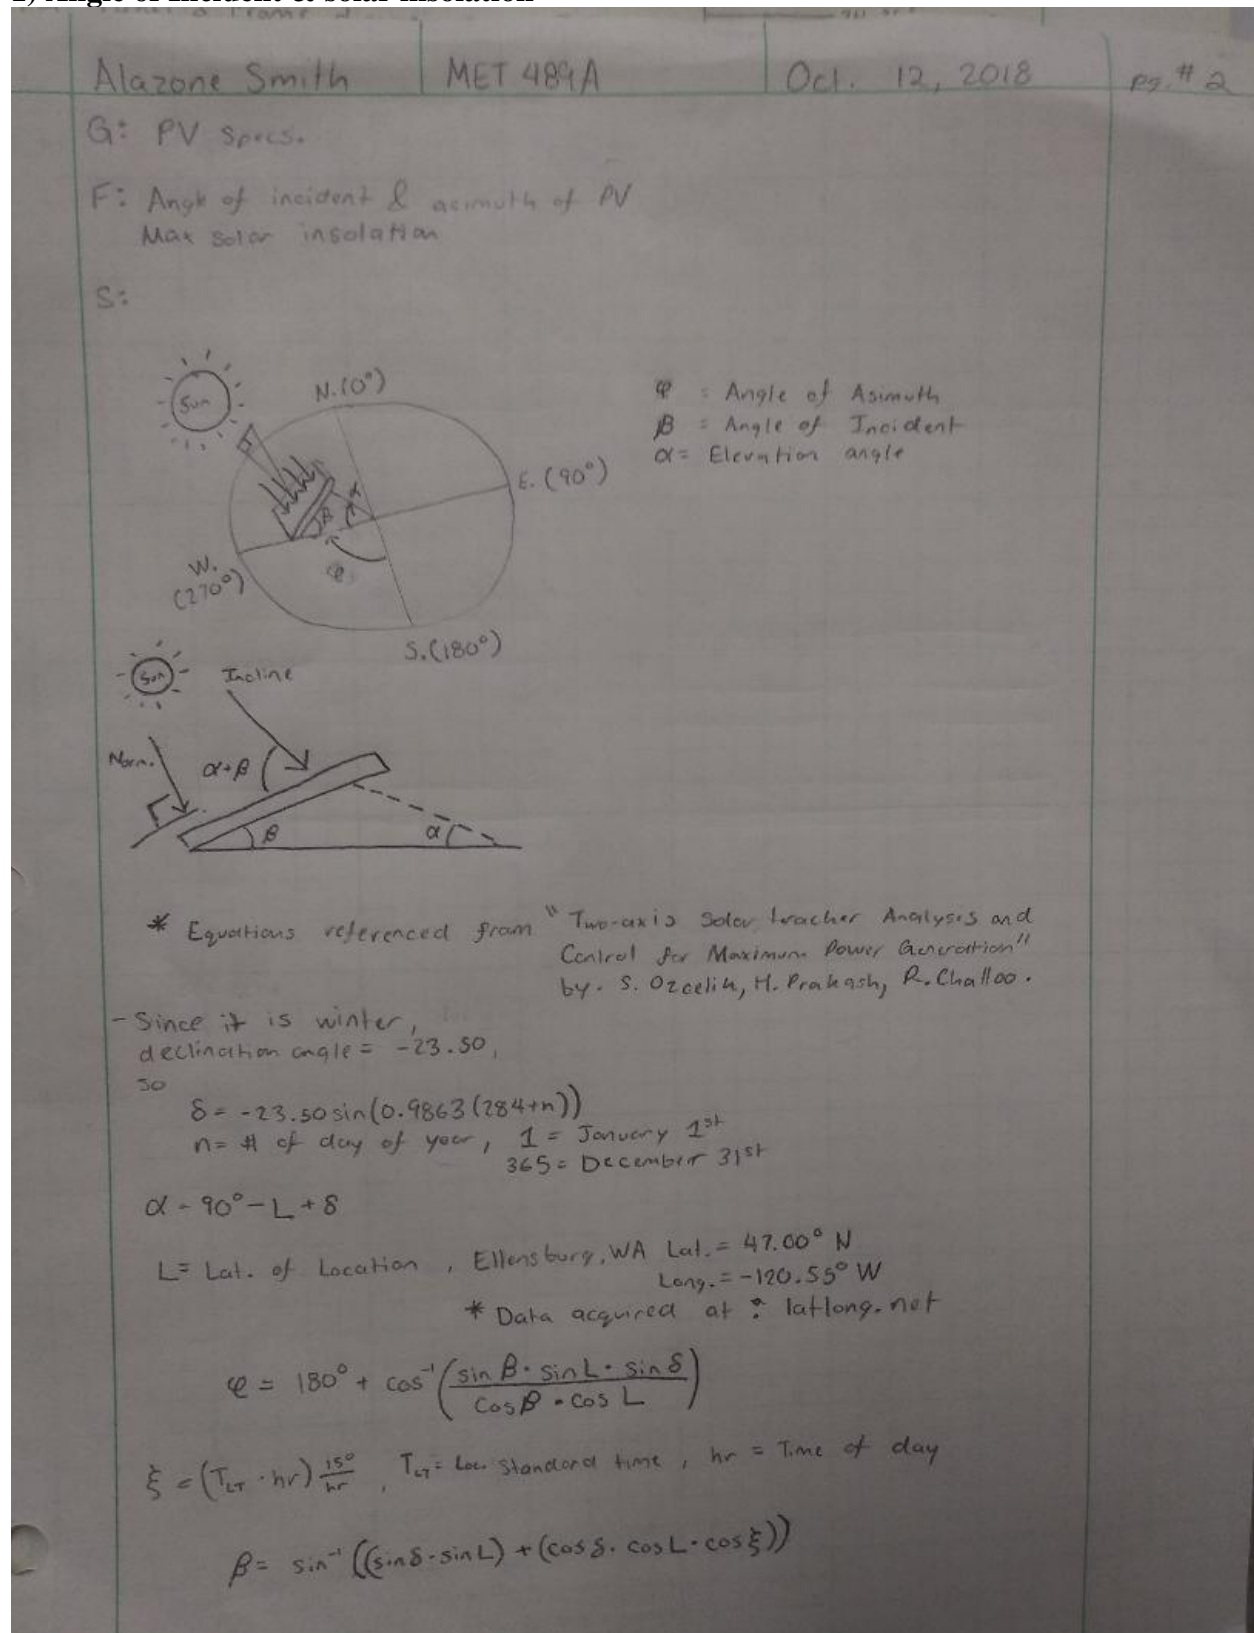 2) Angle of Incident & solar insolation
Alazone Smith MET 489A Oct. 12, 2018 pg. # 2
G: PV Specs.
F: Angle of incident & asimuth of PV
Max solar insolation
S:
Sun
N. (0°)
φ = Angle of Asimuth
β = Angle of Incident
α = Elevation angle
E. (90°)
β α
φ
W.
(270°)
S. (180°)
Sun Incline
Norm. α+β
β α
* Equations referenced from "Two-axis Solar tracker Analysis and
Control for Maximum Power Generation"
by. S. Ozcelik, H. Prakash, R. Challoo.
- Since it is winter,
declination angle = -23.50,
so
δ = -23.50 sin(0.9863(284+n))
n = # of day of year, 1 = January 1st
365 = December 31st
α = 90° - L + δ
L = Lat. of Location, Ellensburg, WA Lat. = 47.00° N
Long. = -120.55° W
* Data acquired at : latlong.net
φ = 180° + cos⁻¹(sin β · sin L · sin δ / cos β · cos L)
ξ = (T_LT · hr) 15°/hr, T_LT = Loc. Standard time, hr = Time of day
β = sin⁻¹((sin δ · sin L) + (cos δ · cos L · cos ξ))